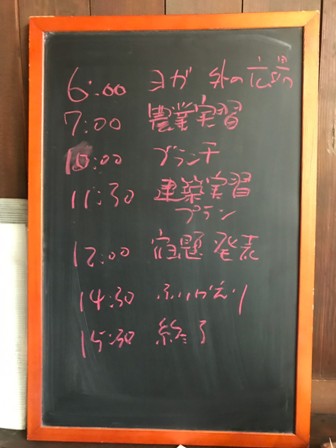 6:00 ヨガ 外の広場
7:00 農業実習
10:00 ブランチ
11:30 建築実習
プラン
12:00 宿題 発表
14:30 ふりかえり
15:30 終了